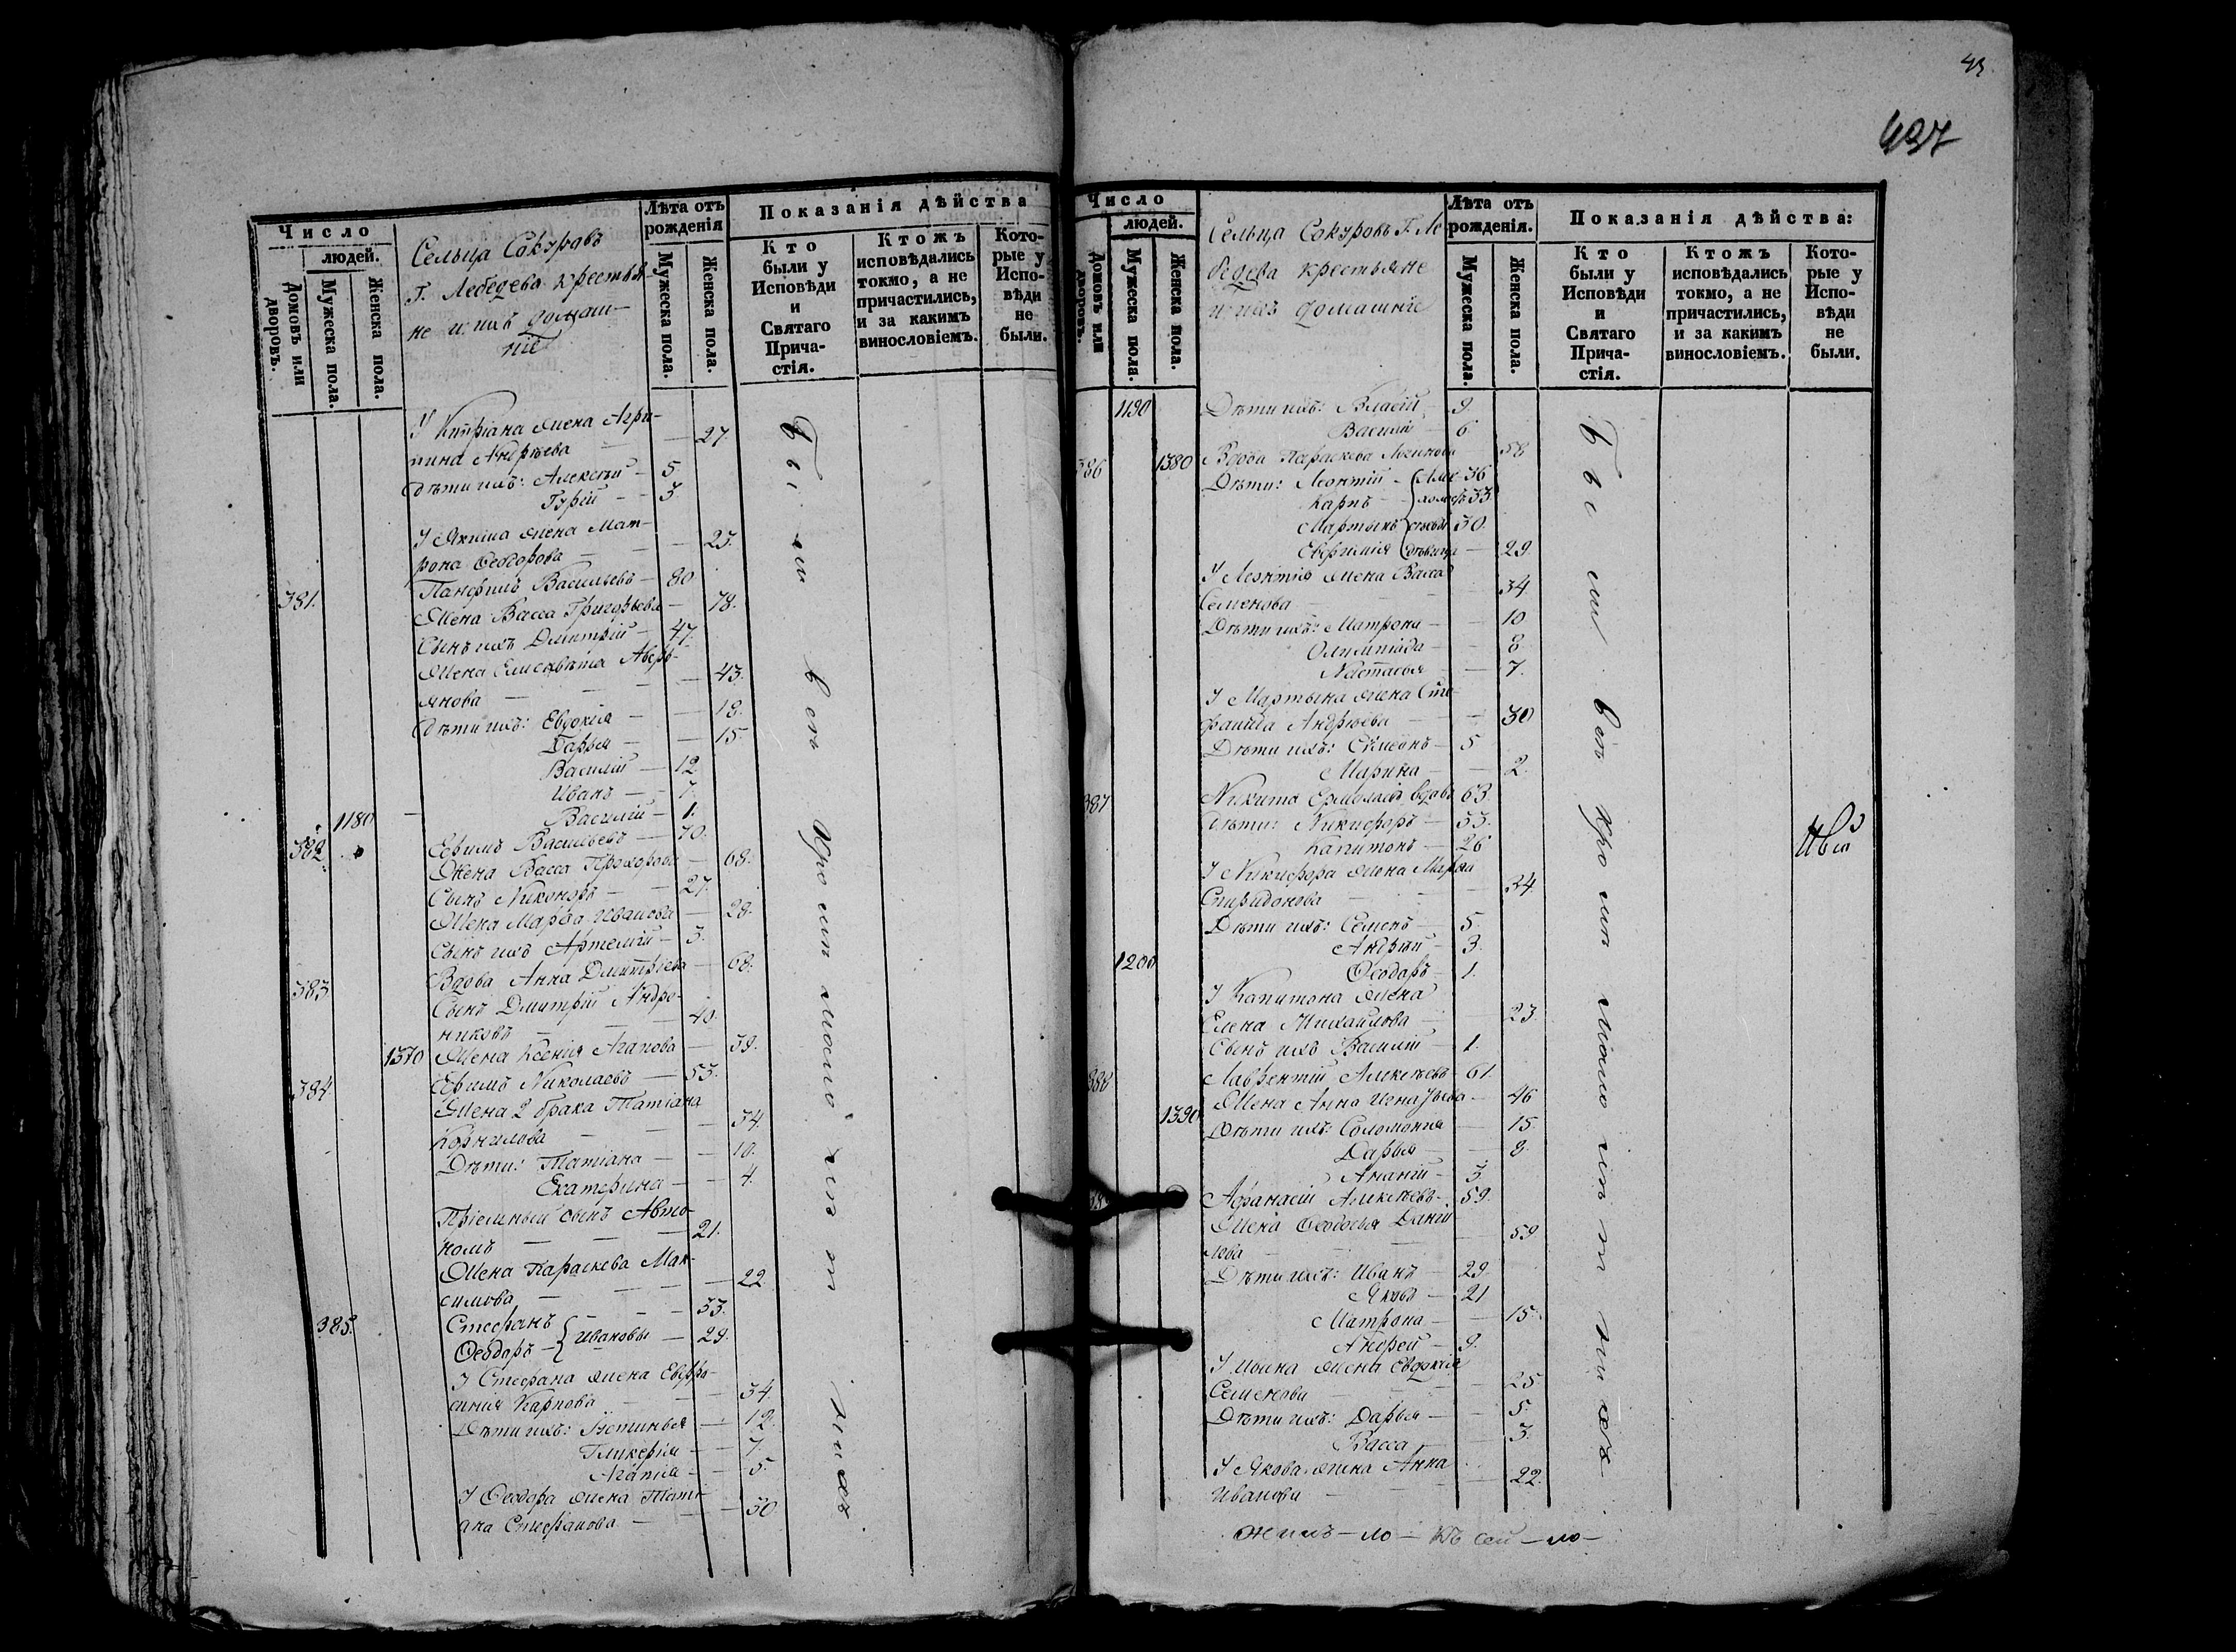 43
437
Число
людей.
Домовъ или дворовъ.
Мужеска пола.
Женска пола.
Сельца Сокуровъ
Г. Лебедева крестья
не и ихъ домаш-
ніе
Лѣта отъ рожденія
Мужеска пола.
Женска пола.
Показанія дѣйства
Кто были у Исповѣди и Святаго Прича-стія.
Ктожъ исповѣдались токмо, а не причастились, и за какимъ винословіемъ.
Кото-рые у Испо-вѣди не были.
У Кипріана жена Агри-
пина Андреева — 27
Дѣти ихъ: Алексѣй — 5
Гурій — 3
У Якима жена Мат-
рона Ѳеодорова — 23.
381. Панфилъ Васильевъ — 80
Жена Васса Григорьева — 78.
Сынъ ихъ Дмитрій — 47.
Жена Елисавета Аверь-
янова — 43.
Дѣти ихъ: Евдокія — 18.
Дарья — 15.
Василій — 12
Иванъ — 7.
1180 Василій — 1.
382 Ефимъ Васильевъ — 70.
Жена Васса Прохорова — 68.
Сынъ Никоноръ — 27.
Жена Марѳа Иванова — 28.
Сынъ ихъ Артемій — 3.
383 Вдова Анна Дмитріева — 68.
Сынъ Дмитрій Андро-
никовъ — 40.
1370 Жена Ксенія Агапова — 39.
384 Ефимъ Николаевъ — 53.
Жена 2 брака Татіана
Корнилова — 34.
Дѣти: Татіана — 10.
Екатерина — 4.
Пріемный сынъ Авто-
номъ — 21.
Жена Параскева Мак-
симова — 22
385. Стефанъ — 33.
Ѳеодоръ { Ивановы — 29.
У Стефана жена Евфро-
синія Карпова — 34.
Дѣти ихъ: Устинья — 12.
Гликерія — 7.
Агапія — 5.
У Ѳеодора жена Тати-
ана Стефанова — 30
Были вси кромѣ малолѣтнихъ
Число
людей.
Домовъ или дворовъ.
Мужеска пола.
Женска пола.
Сельца Сокуровъ Г. Ле
бедева крестьяне
и ихъ домашніе
Лѣта отъ рожденія.
Мужеска пола.
Женска пола.
Показанія дѣйства:
Кто были у Исповѣди и Святаго Прича-стія.
Ктожъ исповѣдались токмо, а не причастились, и за какимъ винословіемъ.
Кото-рые у Испо-вѣди не были.
1190 Дѣти ихъ: Власій — 9
Василій — 6
386 1380 Вдова Параскева Логинова 58
Дѣти: Леонтій — 36
Карпъ — 33
Мартынъ 30.
Евфимія девица — 29.
У Леонтія жена Васса
Семенова — 34.
Дѣти ихъ: Матрона — 10
Олимпіада — 8
Настасья — 7.
У Мартына жена Сте-
фанида Андреева — 30
Дѣти ихъ: Симеонъ — 5
Марина — 2.
387 Никита Ермолаевъ вдовъ 63.
Дѣти: Никифоръ — 33.
Капитонъ — 26
У Никифора жена Марѳа
Спиридонова — 34
Дѣти ихъ: Семенъ — 5.
Андрѣй — 3.
1200 Ѳеодоръ — 1.
У Капитона жена
Елена Михайлова — 23.
Сынъ ихъ Василій — 1.
388 Лаврентій Алексѣевъ 61.
Жена Анна Игнатьева — 46
1390 Дѣти ихъ: Соломонія — 15.
Дарья — 8.
Ананій — 3
Афанасій Алексѣевъ — 59.
Жена Ѳеодосья Дани-
лова — 59
Дѣти ихъ: Иванъ — 29.
Яковъ — 21
Матрона — 15.
Андрей — 9.
У Ивана жена Евдокія
Семенова — 25
Дѣти ихъ: Дарья — 5.
Васса — 3.
У Якова жена Анна
Иванова — 22.
Были вси кромѣ малолѣтнихъ